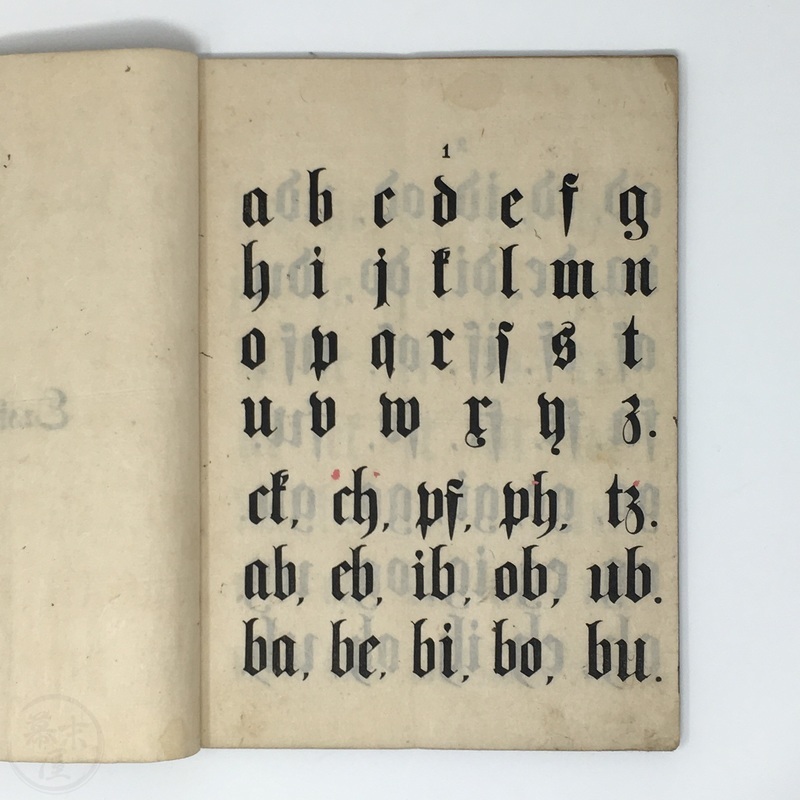 1
a b c d e f g
h i j k l m n
o p q r ſ s t
u v w x y z.
ck, ch, pf, ph, tz.
ab, eb, ib, ob, ub.
ba, be, bi, bo, bu.